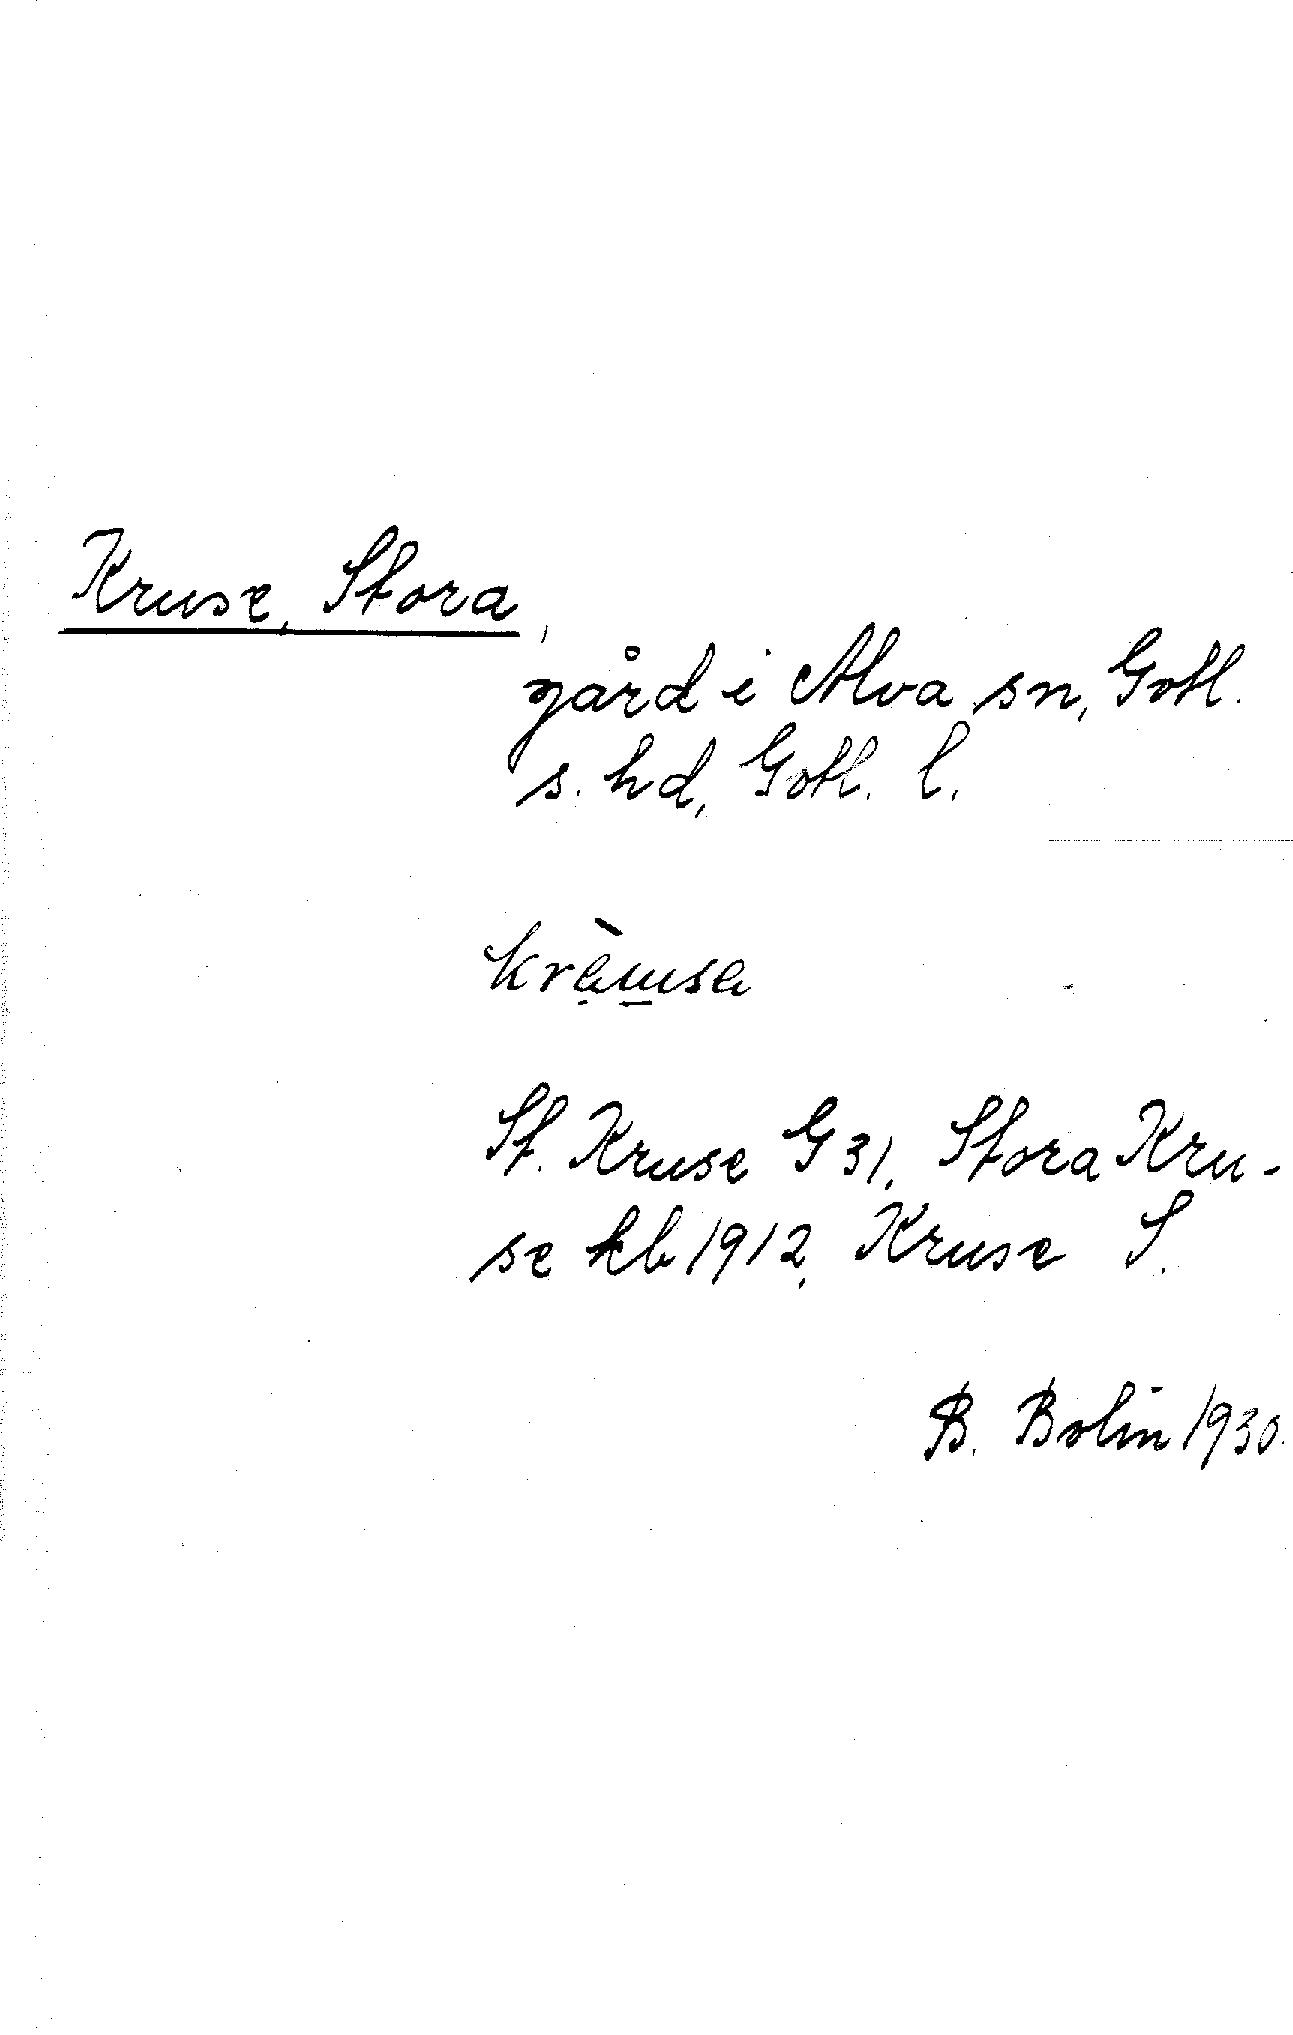 Kruse, Stora,
gård i Alva sn, Gotl.
s. hd, Gotl. l.
kràusa
St. Kruse G 31, Stora Kru-
se kb 1912, Kruse S.
B. Bolin 1930.